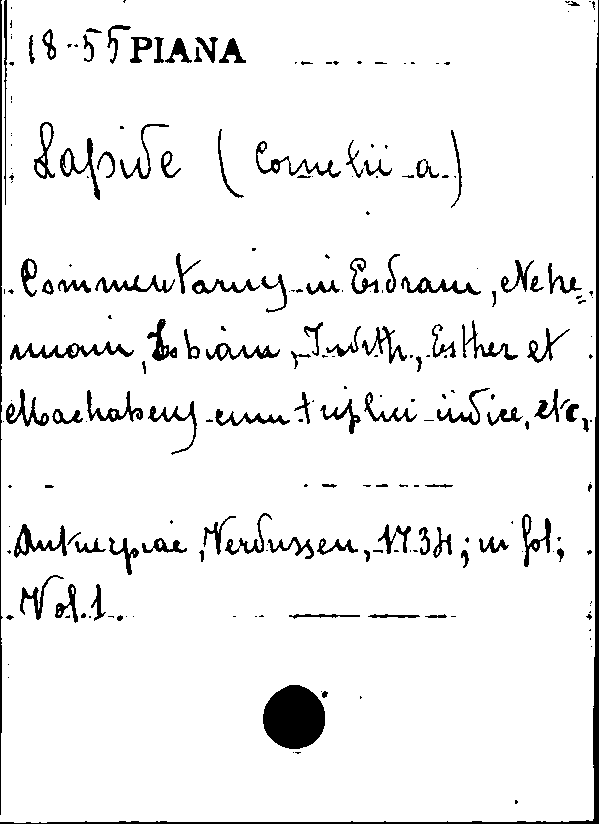 18-55 PIANA
Lapide (Cornelii a)
Commentarius in Esdram, Nehe=
miam, Tobiam, Judith, Esther et
Machabeus cum triplici indice, etc,
Antuerpiae, Verdussen, 1734; in fol;
Vol. 1.